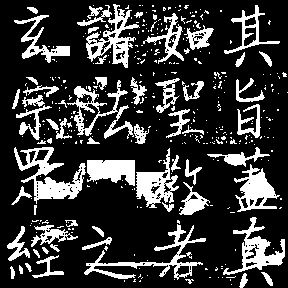 其旨蓋真
如聖教者
諸法之
玄宗眾經